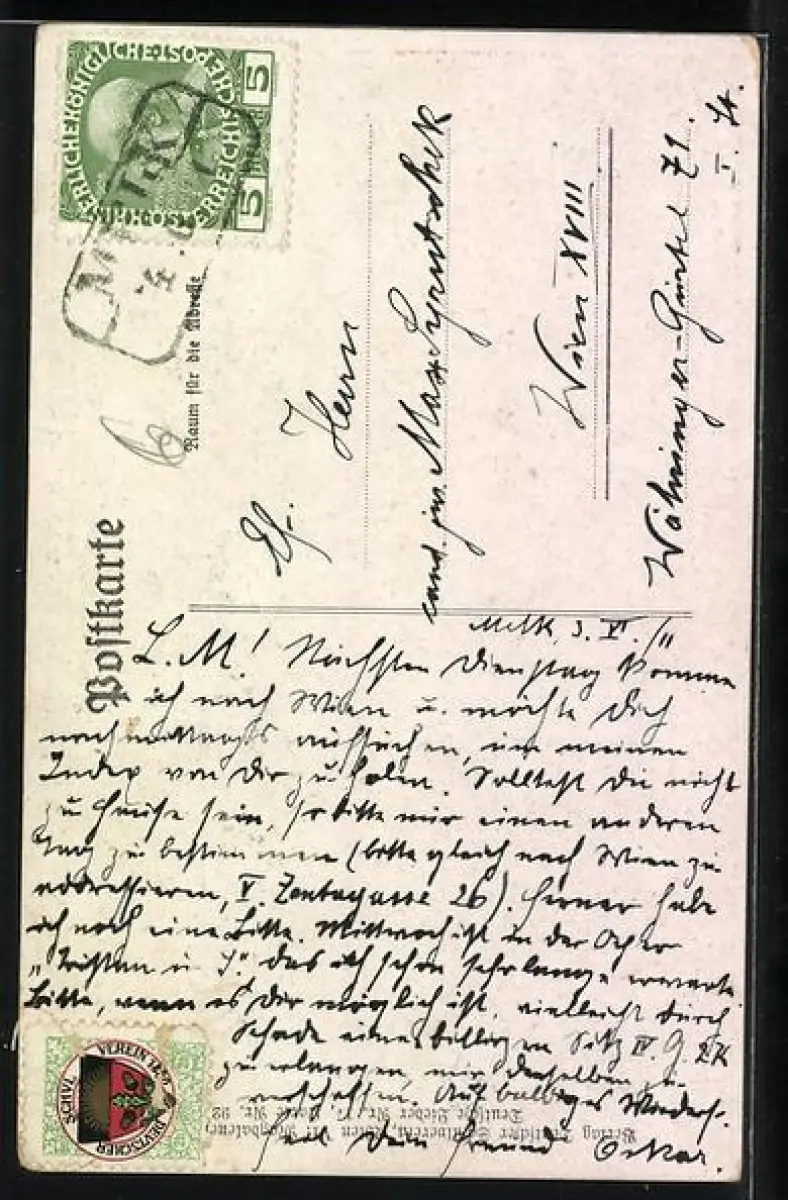 KAISERLICHE KÖNIGLICHE ÖSTERREICHISCHE POST
5 HELLER 5
MELK
4
Postkarte
Raum für die Adresse
6
Herrn
cand. jur. Max
Wien XVIII
Währinger-Gürtel 71.
I. St.
Melk, 3. VI. 11
L. M! Nächsten Dienstag komme
ich nach Wien u. möchte Dich
nachmittags aufsuchen, um meinen
Index von Dir zu holen. Solltest Du nicht
zu Hause sein, so bitte mir einen anderen
Tag zu bestimmen (bitte gleich nach Wien zu
addressieren, V. Zentagasse 26). Ferner habe
ich noch eine Bitte. Mittwoch ist in der Oper
„Tristan u. I." das ich schon sehr lange erwarte
Bitte, wenn es Dir möglich ist, vielleicht durch
einen billigen Sitz IV. G. 2K
zu erlangen, mir denselben zu
verschaffen. Auf baldiges Wiederseh-
Dein Freund Oskar.
Verlag Deutscher Schulverein, Wien
Deutsche Lieder Nr. 17, Karte Nr. 92
VEREIN 1880 DEUTSCHER SCHUL